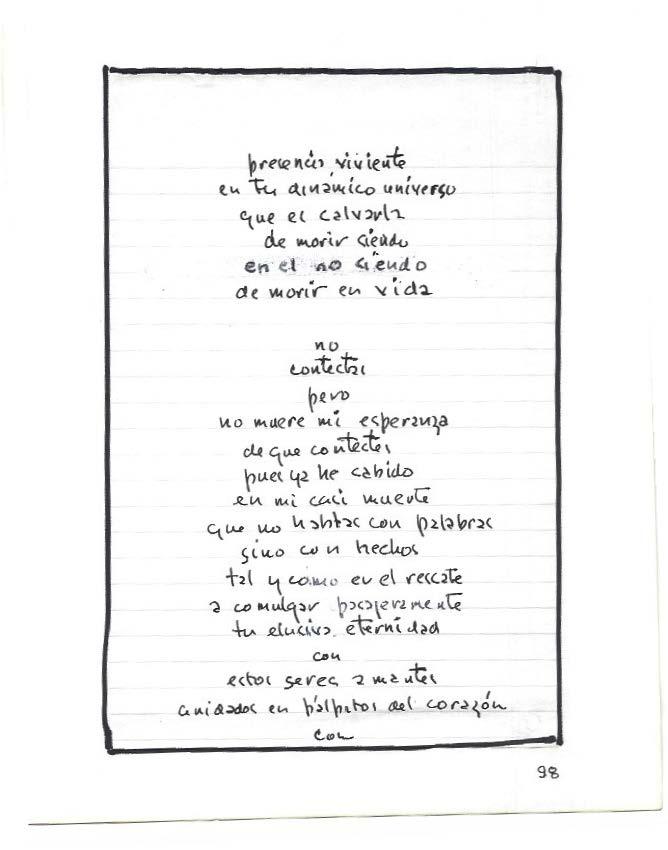 presencia viviente
en tu dinámico universo
que es salvarla
de morir siendo
en el no siendo
de morir en vida
no
contestas
pero
no muere mi esperanza
de que contestes
pues ya he sabido
en mi casi muerte
que no hablas con palabras
sino con hechos
tal y como en el rescate
a comulgar pasajeramente
tu elusiva eternidad
con
estos seres amantes
anidados en pálpitos del corazón
con
98